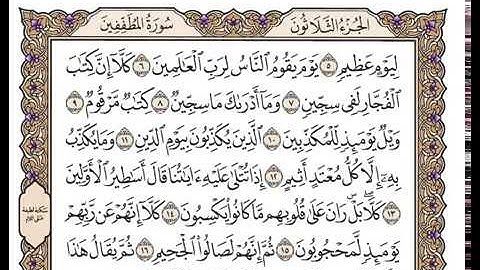 الجزء الثلاثون
سورة المطففين
لِيَوْمٍ عَظِيمٍ ٥ يَوْمَ يَقُومُ النَّاسُ لِرَبِّ الْعَالَمِينَ ٦ كَلَّا إِنَّ كِتَابَ
الْفُجَّارِ لَفِي سِجِّينٍ ٧ وَمَا أَدْرَاكَ مَا سِجِّينٌ ٨ كِتَابٌ مَّرْقُومٌ ٩
وَيْلٌ يَوْمَئِذٍ لِّلْمُكَذِّبِينَ ١٠ الَّذِينَ يُكَذِّبُونَ بِيَوْمِ الدِّينِ ١١ وَمَا يُكَذِّبُ
بِهِ إِلَّا كُلُّ مُعْتَدٍ أَثِيمٍ ١٢ إِذَا تُتْلَىٰ عَلَيْهِ ءَايَاتُنَا قَالَ أَسَاطِيرُ الْأَوَّلِينَ
١٣ كَلَّا بَلْ رَانَ عَلَىٰ قُلُوبِهِم مَّا كَانُوا يَكْسِبُونَ ١٤ كَلَّا إِنَّهُمْ عَن رَّبِّهِمْ
يَوْمَئِذٍ لَّمَحْجُوبُونَ ١٥ ثُمَّ إِنَّهُمْ لَصَالُوا الْجَحِيمِ ١٦ ثُمَّ يُقَالُ هَٰذَا
سكتة لطيفة
على اللام